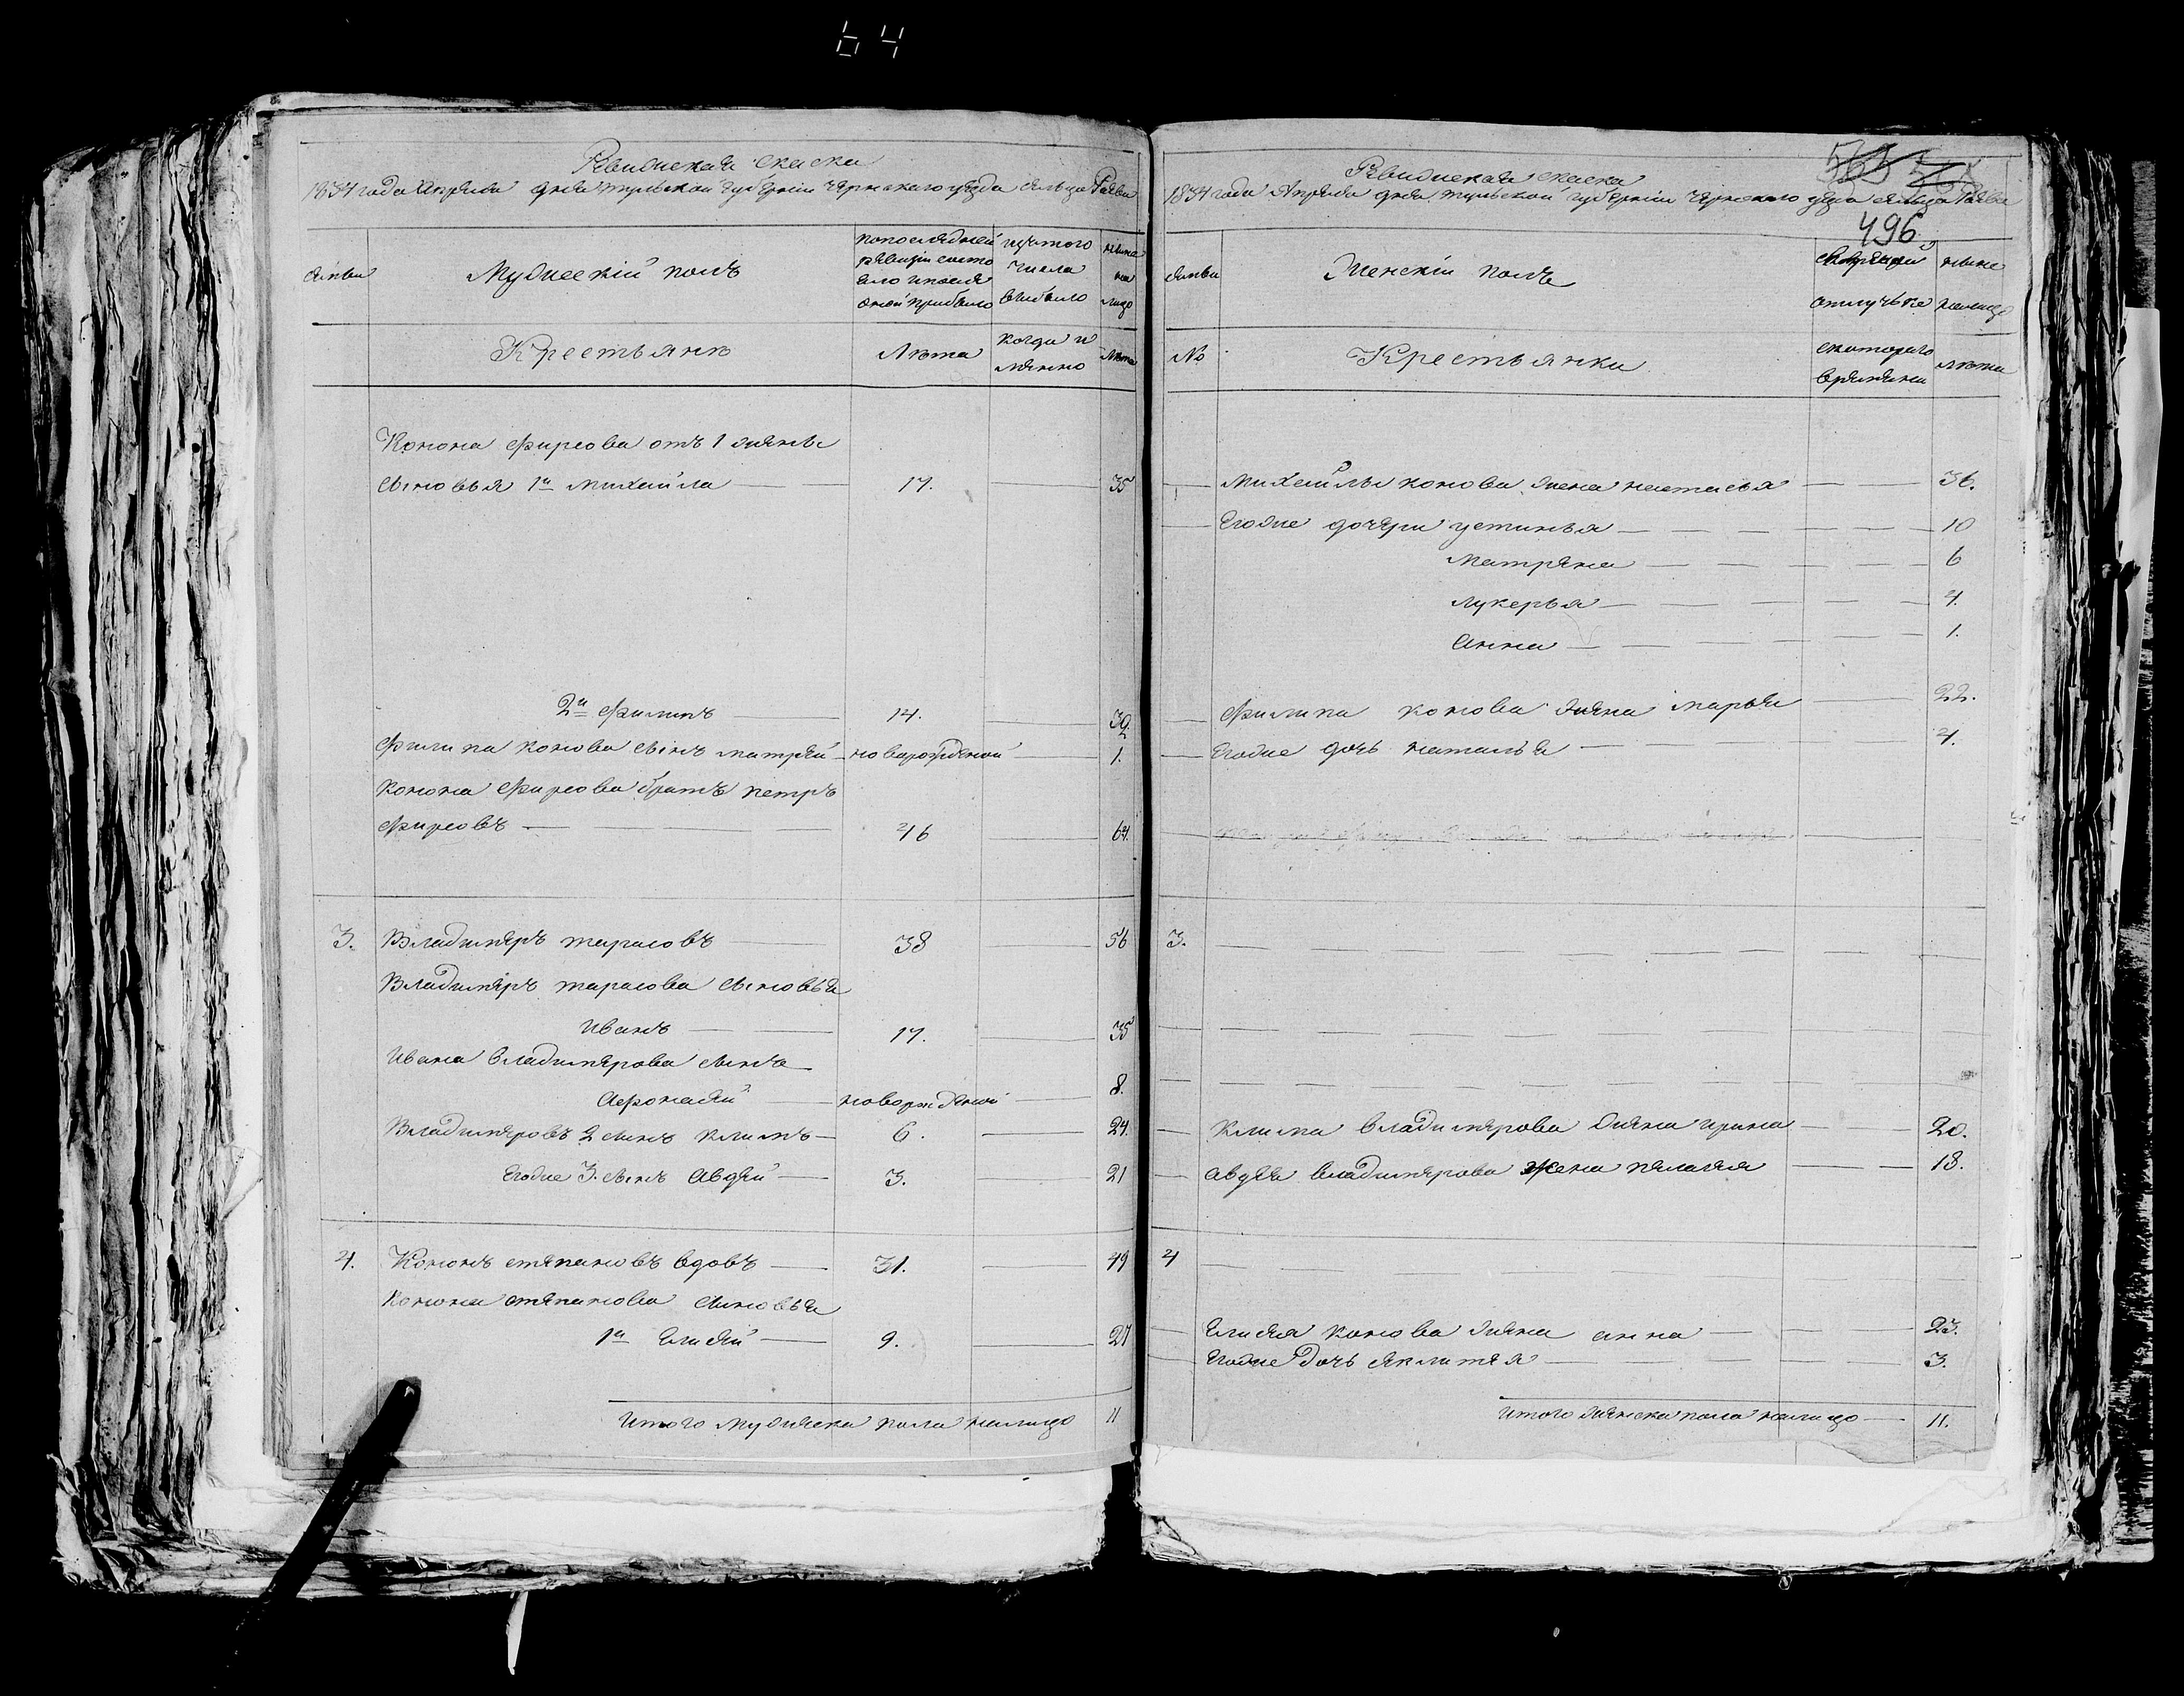 64
Ревижская скаска
1834 года Апреля дня тульской губерніи чернскаго уезда сельца
семьи
Мужеский полъ
попоследней ревизіи состояло ипосле оной прибыло
изътого числа выбыло
ныне на лицо
Крестьяне
Лета
когда и
Лета
Конона фирсова отъ 1 жены
сыновья 1й михайла 17. 35
2й филипъ 14. 32
филипа конова сынъ матвей новорожденой 1.
конона фирсова братъ петръ
фирсовъ 46 64.
3. Владимеръ тарасовъ 38 56
Владимеръ тарасова сыновья
Иванъ 17. 35
Ивана владимерова сынъ
Афонасей новорожденой 8.
Владимеровъ 2 сынъ климъ 6. 24.
Егоже 3. сынъ Авдей 3. 21
4. Кононъ степановъ вдовъ 31. 49
Конона степанова сыновья
1й Елисей 9. 27
Итого мужеска пола налицо 11
Ревижская скаска
1834 года Апреля дня тульской губерніи чернскаго уезда сельца
496
семьи
Женскіи полъ
отлучьке
ныне налицо
№
Крестьянки
скотораго времяни
лета
михайлы конова жена настасья 36.
Егоже дочери устинья 10
матрена 6
лукерья 4.
анна 1.
филипа конова жена марья 22.
Егоже дочь наталья 4.
3.
клима владимерова жена ирина 20.
авдея владимерова жена пелагея 18.
4
Елисея конова жена анна 23.
Егоже дочь 3.
Итого женска пола налицо 11.